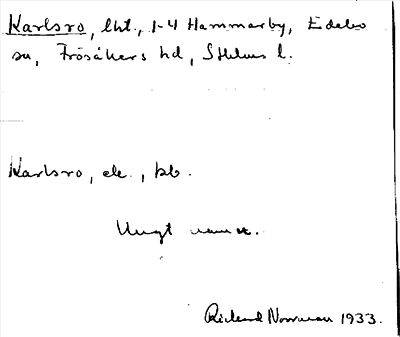 Karlsro, lht., 1-4 Hammarby, Edebo
sn, Frösåkers hd, Sthlms l.
Karlsro, ek., bb.
Ungt namn.
Rickard Norrman 1933.